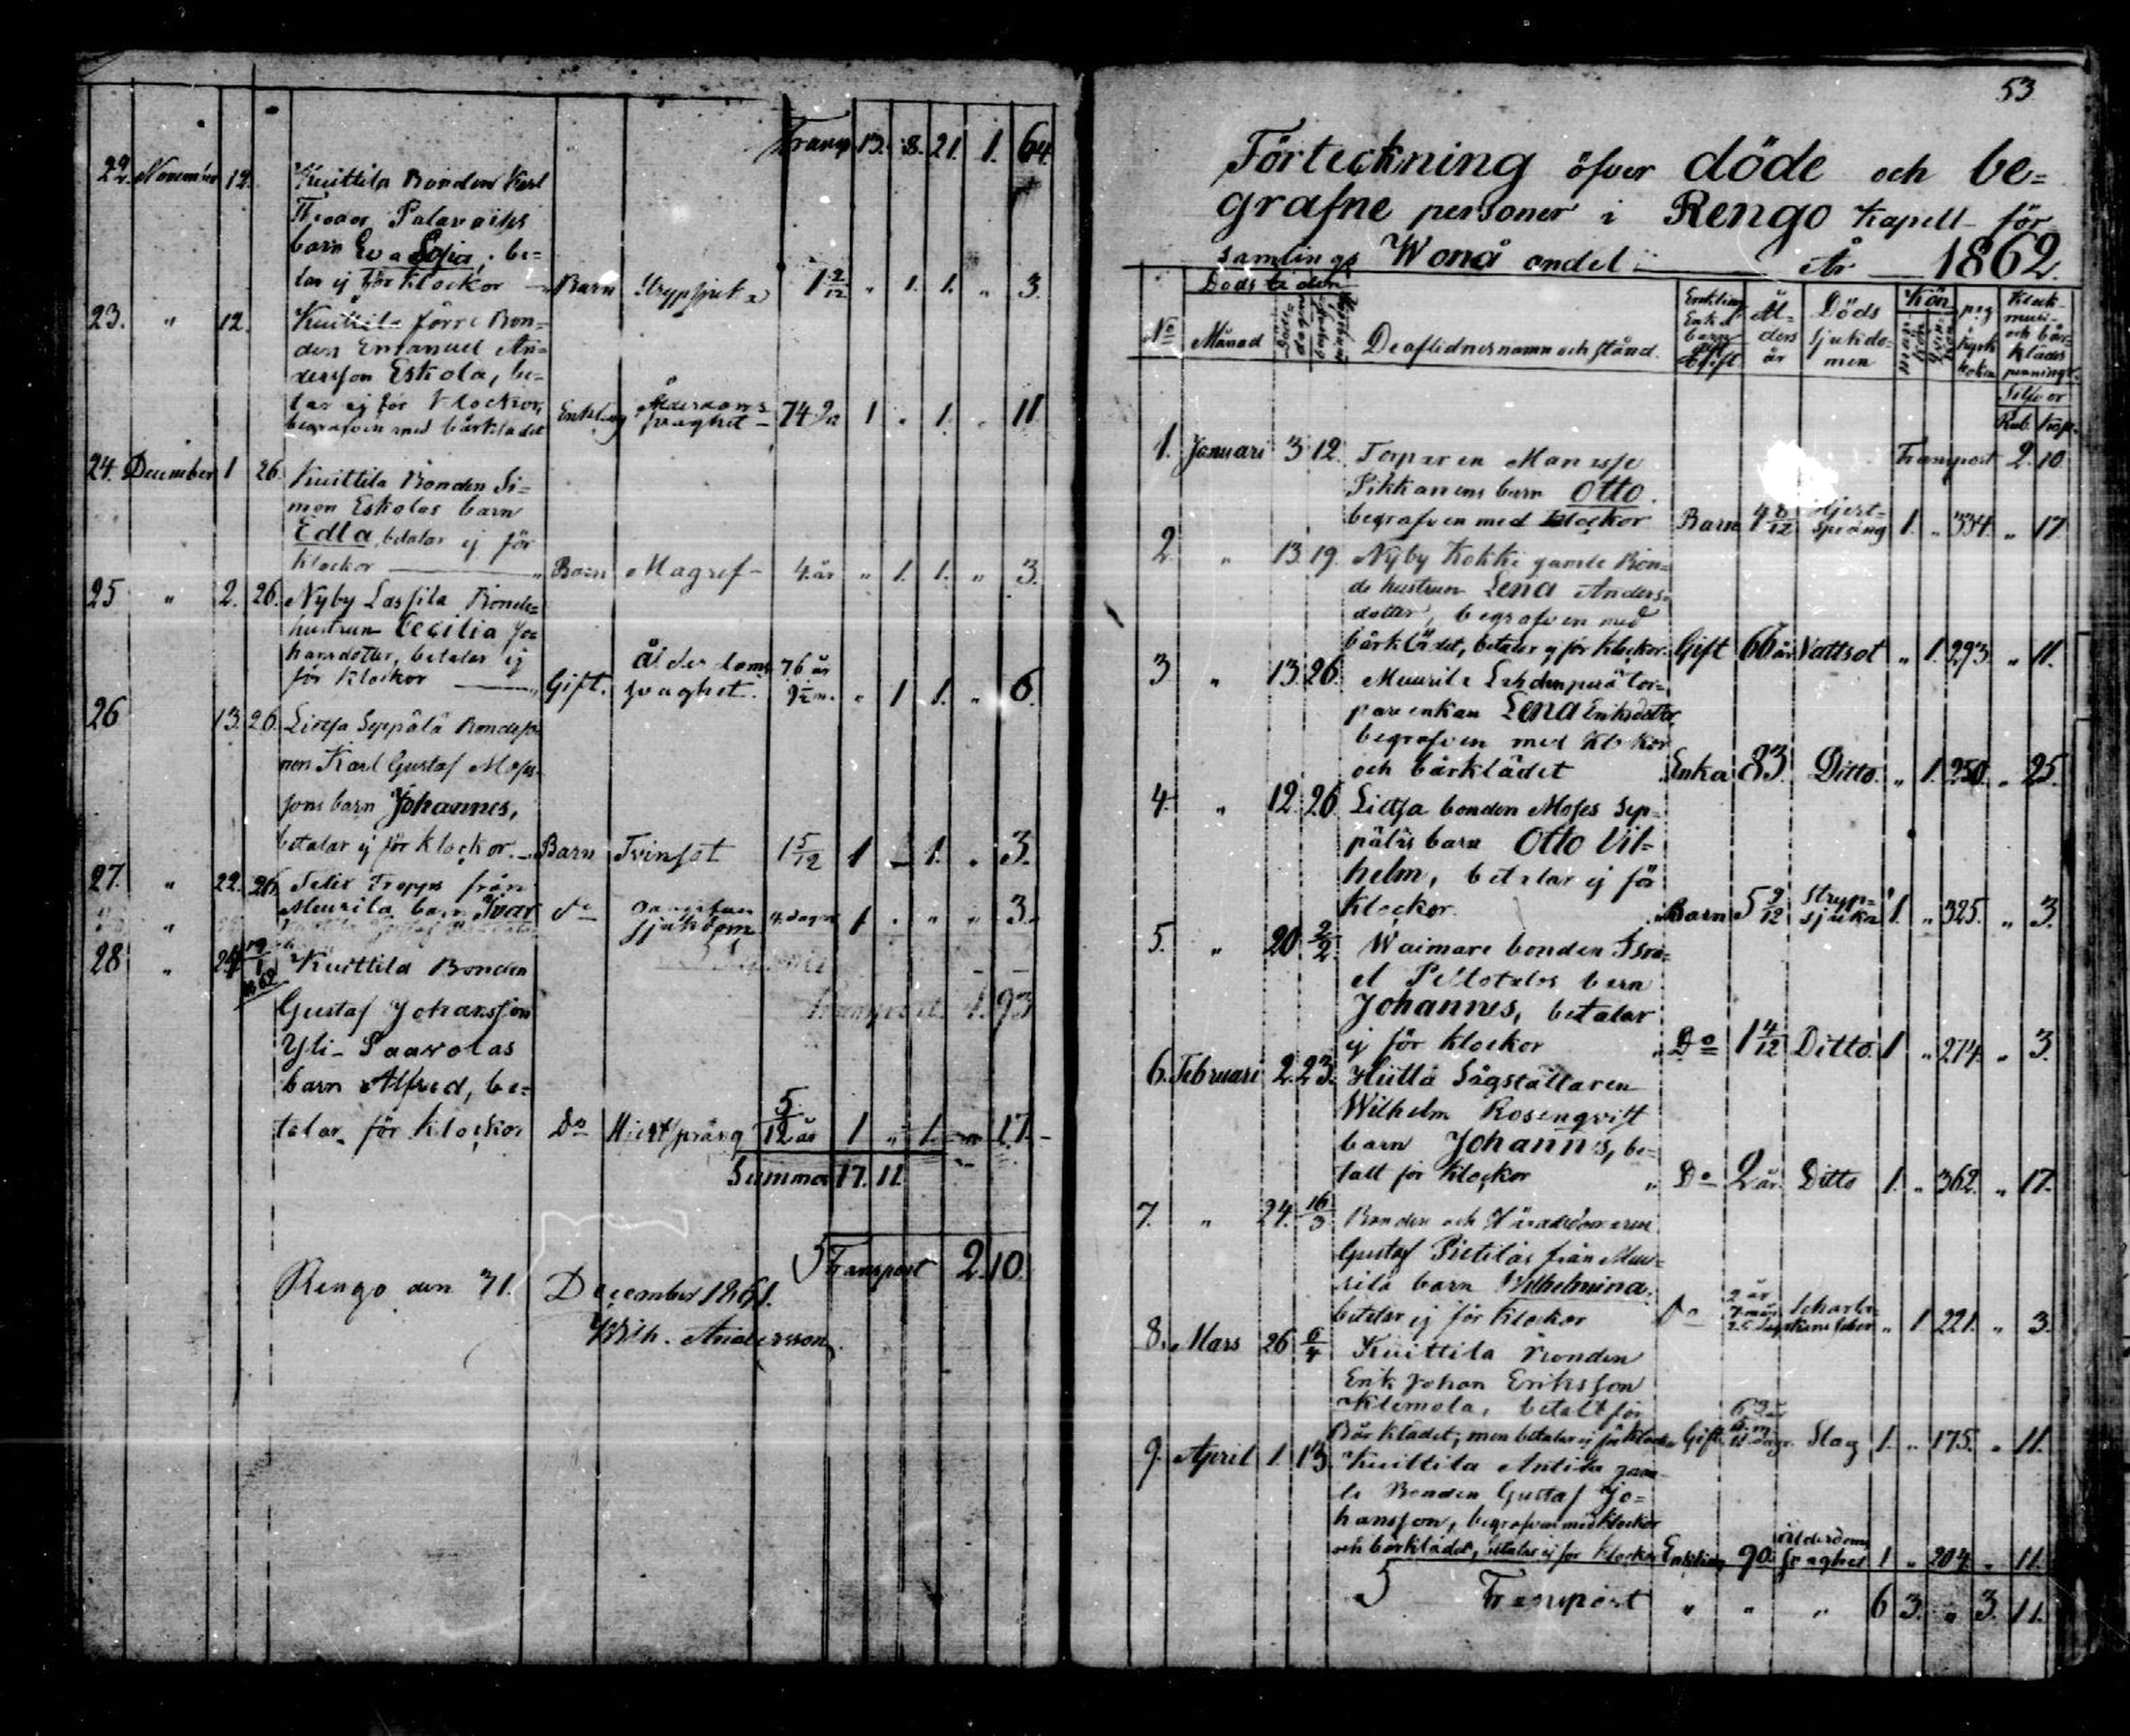 Transp 13. 8. 21. 1. 64
22. November 12. Kuittila Bonden Karl
Theodor Palanders
barn Eva Sofia, be=
lar ej för klockor Barn Strypsjuka 1 2/12 " 1. 1. " 3.
23. " 12. Kuittila förre Bon=
den Emanuel An=
dersson Eskola, be=
lar ej för klockor,
begrafven med bårklädet Enkling Ålderdoms svaghet - 74 1 " 1. " 11
24. December 1 26 Kuittila Bonden Si=
mon Eskolas barn
Edla, betalar ej för
klockor Barn Magref - 4. år " 1. 1. " 3.
25 " 2. 26. Nyby Lassila Bonde=
hustrun Cecilia Jo=
hansdotter, betalar ej
för klockor Gift. Ålderdoms svaghet. 76 år 9 1/2 m. " 1 1. " 6.
26 13. 26. Liedja Seppälä Bondeso=
nen Karl Gustaf Moses=
sons barn Johannes,
betalar ej för klockor. Barn Tvinsot 1 5/12 1 - 1. " 3.
27. " 22. 26. från
Muurila barn Ivar do sjukdom 4. dagar 1 " " " 3.
28 " 24 19/1 1862 Kuittila Bonden
Transport 1. 93
Gustaf Johansson
Yli-Paavolas
barn Alfred, be=
talar för klockor Do Hjertsprång 5/12 år 1 " 1. " 17.
Summa 17. 11.
Transport 2. 10.
Rengo den 31. December 1861.
Wilh. Andersson
53
Förteckning öfver döde och be=
grafne personer i Rengo Kapell för
samlings Wonå andel År 1862.
No Dödstiden Månad Döds dagen begrafnings De aflidnes namn och stånd. Enkling Enka barn Gift Ål= ders år Döds sjukdo= men Kön man= kön pag kyrk boken Klock= mull= och bår= klädes penningar
Silfver
Rub. Kop.
1. Januari 3 12. Torparen Manasse Transport 2. 10
Pikkanens barn Otto.
begrafven med klockor Barn 4 8/12 Hjert= språng 1. " 334. " 17.
2. " 13. 19. Nyby Kokki gamle Bon=
de hustrun Lena Anders=
dotter, begrafven med
bårklädet, betalar ej för klockor. Gift 66 år Vattsot " 1. 293. " 11.
3 " 13 26. Muurila Lehdenperä tor=
pare enkan Lena Eriksdotter
begrafven med klockor
och bårklädet Enka 83. Ditto. " 1. 250. " 25.
4. " 12. 26. Liedja bonden Moses Sep=
päläs barn Otto Vil=
helm, betalar ej för
klockor. Barn 5 9/12 Stryp= sjuka 1. " 325. " 3.
5. " 20 2/2. Waimare bonden Isra=
el Peltotalos barn
Johannes, betalar
ej för klockor " Do 1 4/12 Ditto. 1 " 274. " 3.
6. Februari 2. 23. Hiittä Sågställaren
Wilhelm Rosenqvist
barn Johannes, be=
talt för klockor " Do 2 år. Ditto 1. " 362. " 17.
7. " 24. 16/3 Bonden och Häradsdomaren
Gustaf Pietiläs från Muu=
rila barn Wilhelmina.
betalar ej för klockor Do 2 år 7 mån Scharla= kans feber " 1. 221. " 3.
8. Mars 26 6/4 Kuittila Bonden
Erik Johan Eriksson
Klemola, betalt för
Bårklädet, men betalar ej för klockor Gift Slag 1. " 175. " 11.
9. April 1. 13 Kuittila Antila gam=
le Bonden Gustaf Jo=
hansson, begrafven med klockor
och bårklädet, betalar ej för klockor Enkling 90. Ålderdoms svaghet 1 " 204. " 11.
Transport " " " 6 3. " 3. 11.